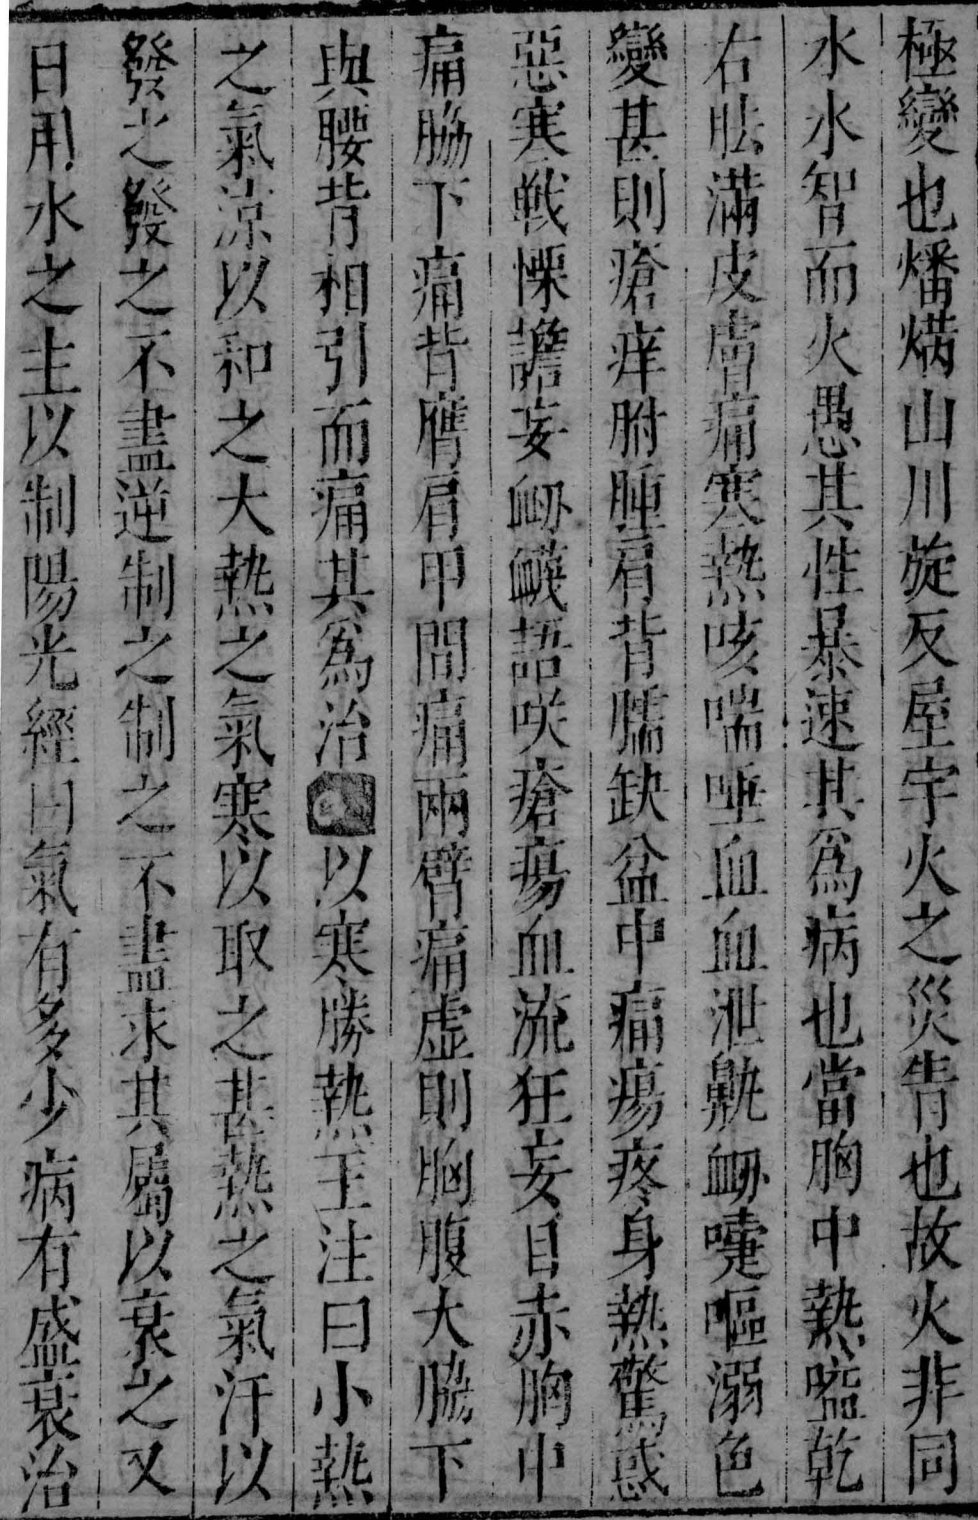 極變也燔焫山川旋反屋宇火之災眚也故火非同
水水智而火愚其性暴速其為病也當胸中熱嗌乾
右胠滿皮膚痛寒熱咳喘唾血血泄鼽衂嚏嘔溺色
變甚則瘡痒胕腫肩背臑缺盆中痛瘍疼身熱驚惑
惡寒戦慄譫妄衂衊語咲瘡瘍血流狂妄目赤胸中
痛脇下痛背膺肩甲間痛兩臂痛虚則胸腹大脇下
與腰背相引而痛其為治以寒勝熱王注曰小熱
之氣涼以和之大熱之氣寒以取之甚熱之氣汗以
發之發之不盡逆制之制之不盡求其屬以衰之又
日用水之主以制陽光經曰氣有多少病有盛衰治